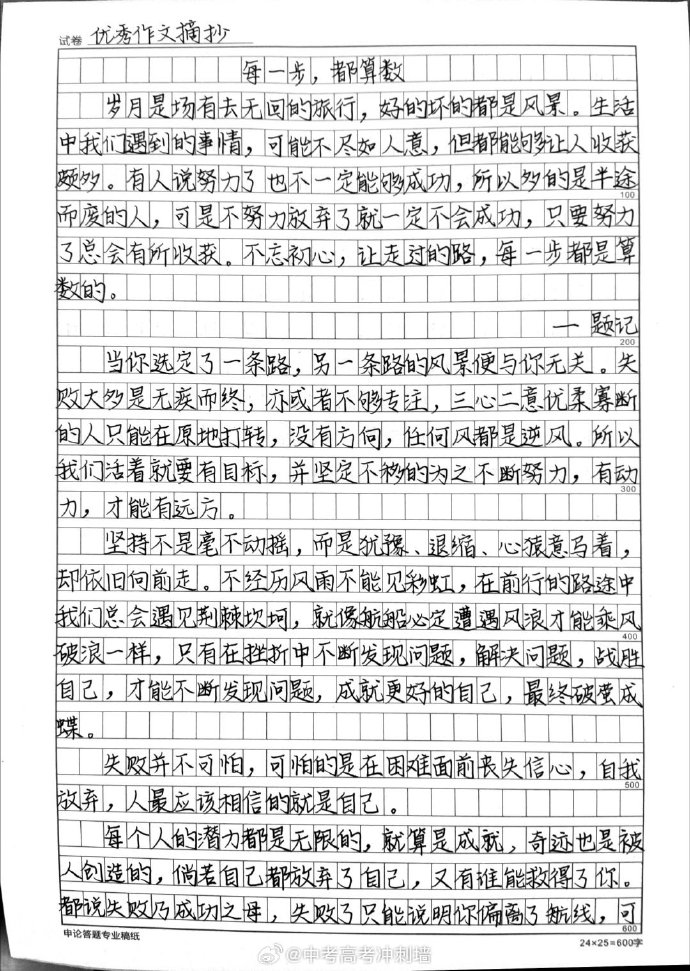 试卷 优秀作文摘抄
每一步，都算数
岁月是场有去无回的旅行，好的坏的都是风景。生活
中我们遇到的事情，可能不尽如人意，但都能够让人收获
颇多。有人说努力了也不一定能够成功，所以多的是半途
100
而废的人，可是不努力放弃了就一定不会成功，只要努力
了总会有所收获。不忘初心，让走过的路，每一步都是算
数的。
—题记
200
当你选定了一条路，另一条路的风景便与你无关。失
败大多是无疾而终，亦或者不够专注，三心二意优柔寡断
的人只能在原地打转，没有方向，任何风都是逆风。所以
我们活着就要有目标，并坚定不移的为之不断努力，有动
300
力，才能有远方。
坚持不是毫不动摇，而是犹豫、退缩、心猿意马着，
却依旧向前走。不经历风雨不能见彩虹，在前行的路途中
我们总会遇见荆棘坎坷，就像航船必定遭遇风浪才能乘风
400
破浪一样，只有在挫折中不断发现问题，解决问题，战胜
自己，才能不断发现问题，成就更好的自己，最终破茧成
蝶。
失败并不可怕，可怕的是在困难面前丧失信心，自我
500
放弃，人最应该相信的就是自己。
每个人的潜力都是无限的，就算是成就，奇迹也是被
人创造的，倘若自己都放弃了自己，又有谁能救得了你。
都说失败乃成功之母，失败了只能说明你偏离了航线，可
600
申论答题专业稿纸
24×25=600字
@中考高考冲刺墙